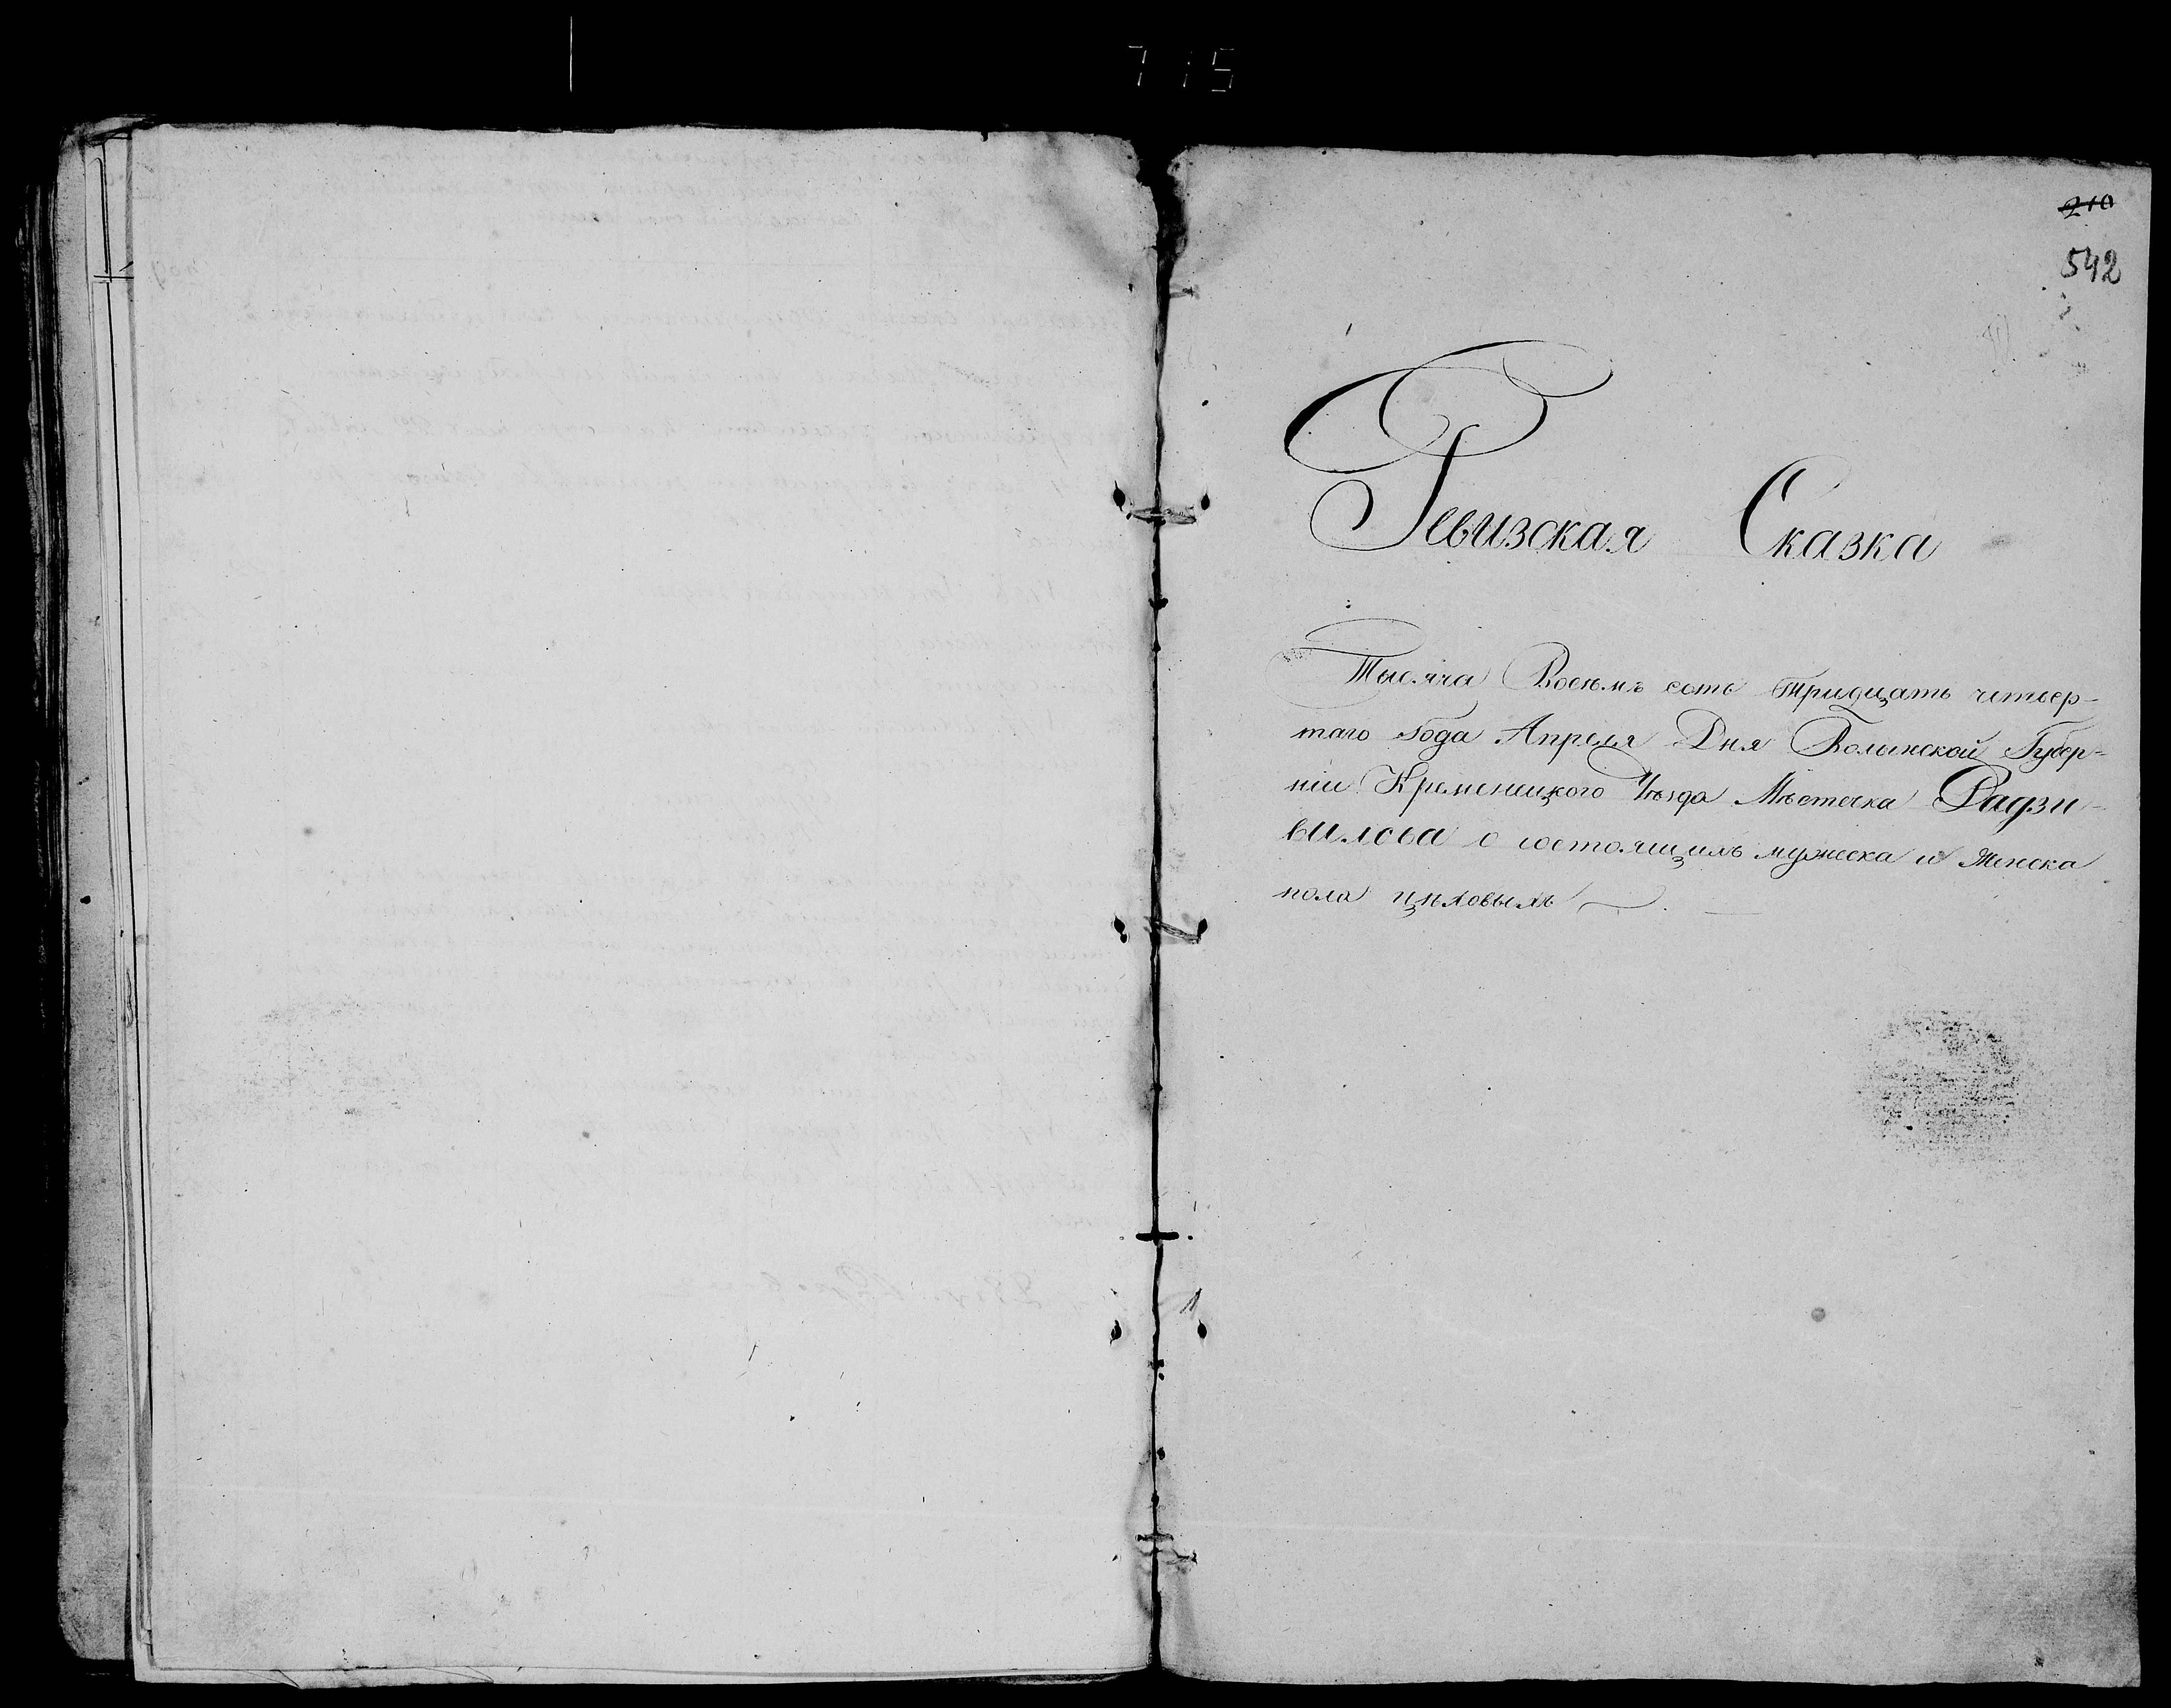 715
210
542
Ревизская Сказка
Тысяча Восемъ сотъ Тридцать четвер-
таго Года Апреля Дня Волынской Губер-
нiи Кременецкого Уѣзда Мѣстечка Радзи-
вилова о состоящихъ мужеска и женска
пола цѣховыхъ